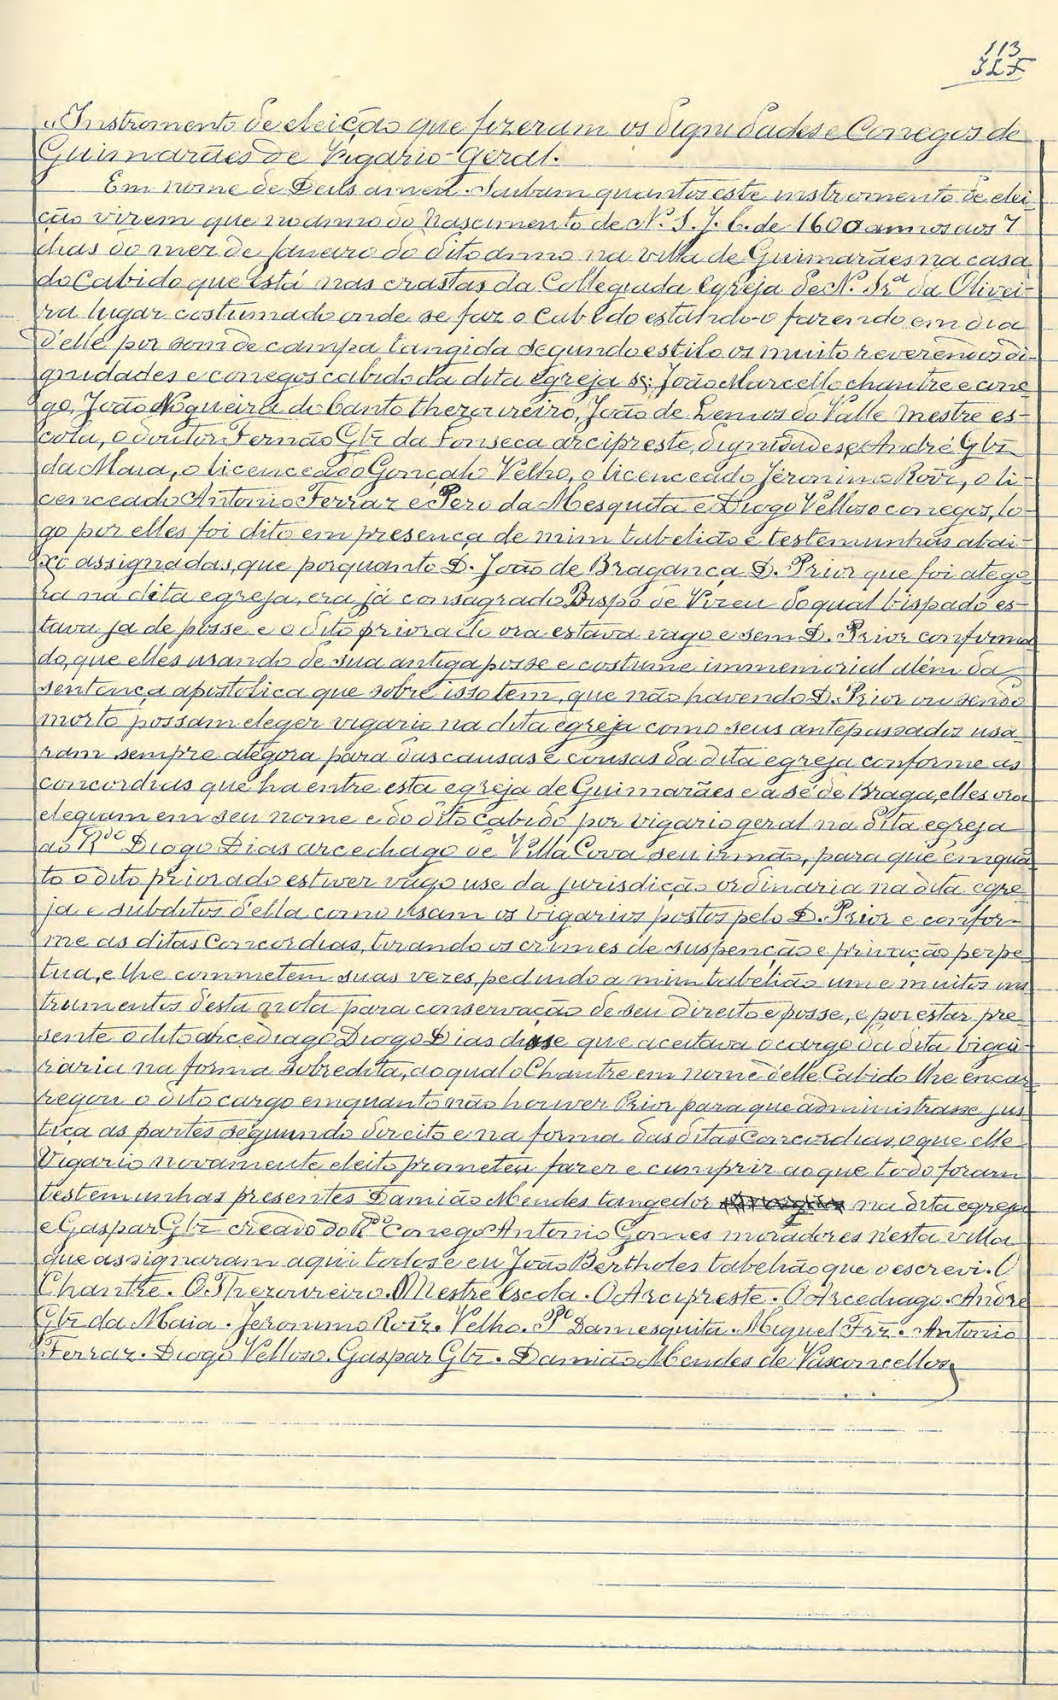 113
„Instromento de eleição que fizeram os Dignidades e Conegos de
Guimarães de Vigario Geral.
Em nome de Deus amen. Saibam quantos este instromento de elei-
ção virem que no anno do Nascimento de N. S. J. C. de 1600 annos aos 7
dias do mez de Janeiro do dito anno na villa de Guimarães na casa
do Cabido que está nas crastas da Collegiada Egreja de N. Sr.ª da Olivei-
ra lugar costumado onde se faz o Cabido estando-o fazendo em dia
d'elle por som de campa tangida segundo estilo os muito reverendos di-
gnidades e conegos cabido da dita egreja sc; João Marcello chantre e cone-
go, João Nogueira do Canto thezoureiro, João de Lemos do Valle mestre es-
cola, o doutor Fernão Glz da Fonseca arcipreste, dignidades, e André Glz
da Maia, o licenceado Gonçalo Velho, o licenceado Jeronimo Roiz, o li-
cenceado Antonio Ferraz e Pero da Mesquita e Diogo Velloso conegos, lo-
go por elles foi dito em presença de mim tabelião e testemunhas abai-
xo assignadas, que porquanto D. João de Bragança D. Prior que foi atego-
ra na dita egreja, era já consagrado Bispo de Vizeu do qual bispado es-
tava ja de posse e o dito priorado ora estava vago e sem D. Prior confirma-
do, que elles usando de sua antiga posse e costume immemorial além da
sentença apostolica que sobre isso tem, que não havendo D. Prior ou sendo
morto possam eleger vigario na dita egreja como seus antepassados usa-
ram sempre ategora para das causas e cousas da dita egreja conforme as
concordias que ha entre esta egreja de Guimarães e a sé de Braga, elles ora
elegiam em seu nome e do dito Cabido por vigario geral na dita egreja
ao R.do Diogo Dias arcediago de Villa Cova seu irmão, para que emquã-
to o dito priorado estiver vago use da jurisdição ordinaria na dita egre-
ja e subditos d'ella como usam os vigarios postos pelo D. Prior e confor-
me as ditas Concordias, tirando os crimes de suspenção e privação perpe-
tua, e lhe commetem suas vezes, pedindo a mim tabelião um e muitos ins-
trumentos desta nota para conservação de seu direito e posse, e por estar pre-
sente o dito arcediago Diogo Dias disse que aceitava o cargo da dita vigai-
riaria na forma sobredita, ao qual o Chantre em nome d'elle Cabido lhe encar-
regou o dito cargo emquanto não houver Prior para que administrasse jus-
tiça as partes segundo direito e na forma das ditas Concordias, o que elle
Vigario novamente eleito prometeu fazer e cumprir ao que todo foram
testemunhas presentes Damião Mendes tangedor na dita egreja
e Gaspar Glz creado do R.do Conego Antonio Gomes moradores n'esta villa
que assignaram aqui todos e eu João Bertholes tabelião que o escrevi. O
Chantre. O Thezoureiro. O Mestre Escola. O Arcipreste. O Arcediago. André
Glz da Maia. Jeronimo Roiz. Velho. P.º Damesquita. Miguel Frz. Antonio
Ferraz. Diogo Velloso. Gaspar Glz. Damião Mendes de Vasconcellos